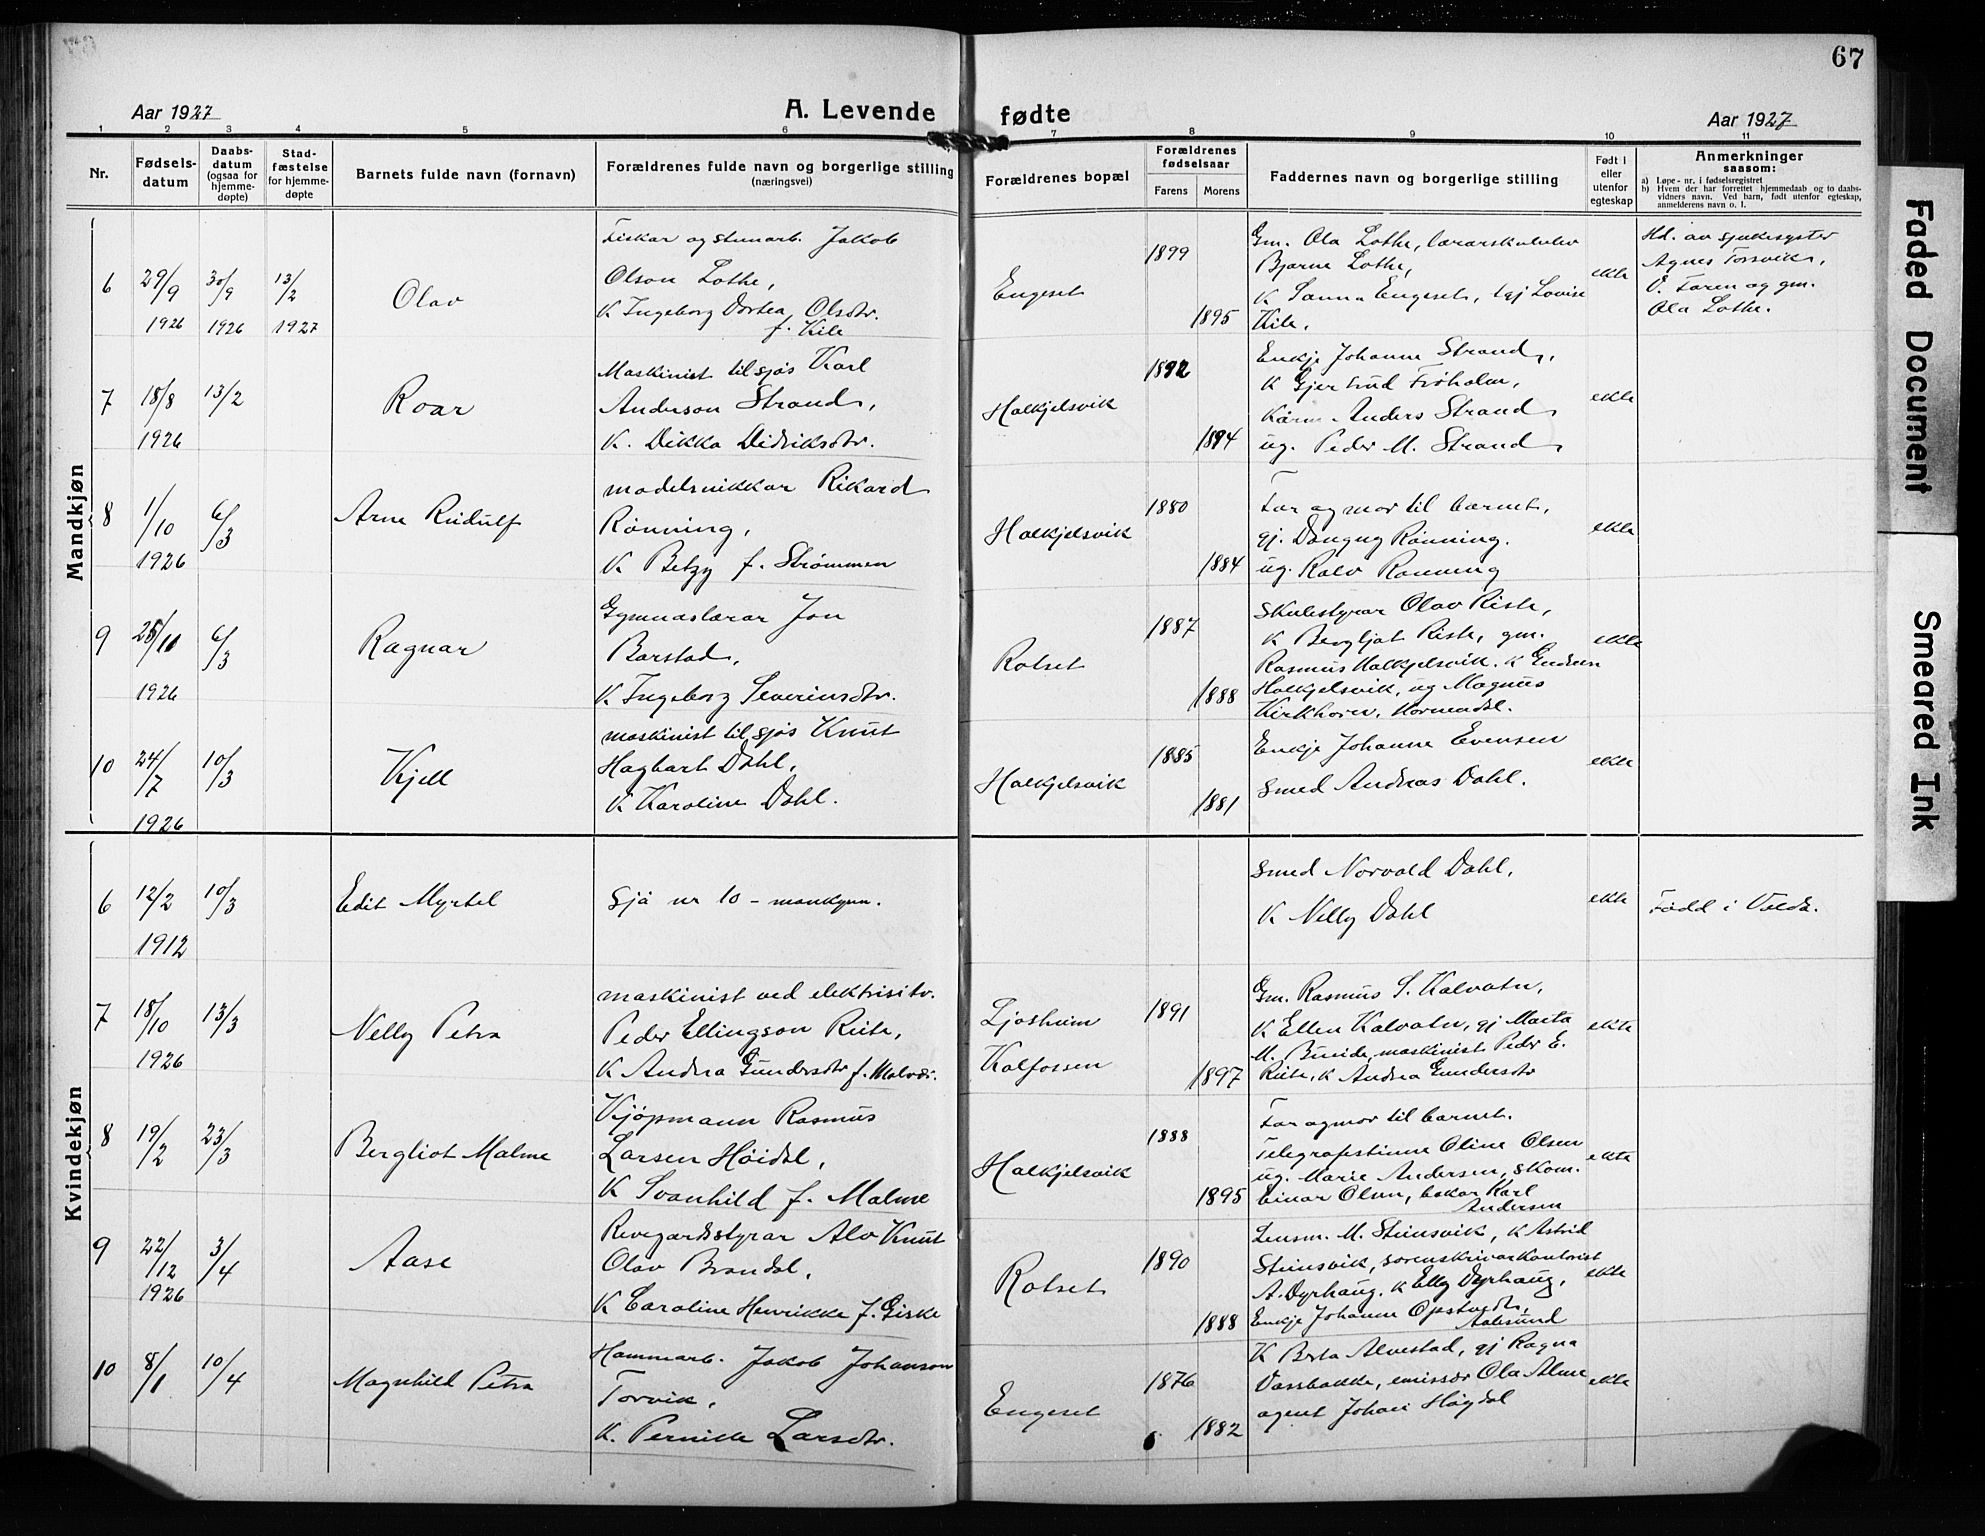 67
Aar 1927
A. Levende
fødte
Aar 1927
1 2 3 4 5 6 7 8 9 10 11
Nr.
Fødsels-
datum
Daabs-
datum
(ogsaa for
hjemme-
døpte)
Stad-
fæstelse
for hjemme-
døpte
Barnets fulde navn (fornavn)
Forældrenes fulde navn og borgerlige stilling
(næringsvei)
Forældrenes bopæl
Forældrenes
fødselsaar
Farens Morens
Faddernes navn og borgerlige stilling
Født i
eller
utenfor
egteskap
Anmerkninger
saasom:
a) Løpe-nr. i fødselsregistret
b) Hvem der har forrettet hjemmedaab og to daabs-
vidners navn. Ved barn, født utenfor egteskap,
anmelderens navn o. l.
Mandkjøn
6 29/9 1926 30/9 1926 13/2 1927
Olav
Fiskar og stenarb. Jakob
Olson Lothe,
K Ingeborg Dortea Olsdtr.
f. Kile
Engeset
1899
1895
Gm. Ola Lothe, lærarskuleelev
Bjarne Lothe,
K Sanna Engeset, tgj Lovise
Kile.
ekte
Hd. av sjukesyster
Agnes Torsvik,
V. Faren og gm.
Ola Lothe.
7 18/8 1926 13/2
Roar
Maskinist til sjøs Karl
Anderson Strand,
K. Dikka Didriksdtr.
Halkjelsvik
1892
1894
Enkje Johanne Strand,
K Gjertrud Frøholm,
Anders Strand
ug. Peder M. Strand
ekte
8 1/10 1926 6/3
Arne Rudulf
modelsnikkar Rikard
Rønning,
K Betzy f. Strømmen
Halkjelsvik
1880
1884
Far og mor til barnet,
gj. Dangny Rønning.
ug. Ralv Rønning
ekte
9 25/11 1926 6/3
Ragnar
Gymnaslærar Jon
Barstad,
K Ingeborg Severinsdtr.
Rotset
1887
1888
Skulestyrar Olav Riste,
K Bergljot Riste, gm.
Rasmus Halkjelsvik. K Gudrun
Halkjelsvik, ug Magnus
Kirkhorn, Hornindal.
ekte
10 24/7 1926 10/3
Kjell
maskinist til sjøs Knut
Hagbart Dahl,
K Karoline Dahl.
Halkjelsvik
1885
1881
Enkje Johanne Evensen
smed Andreas Dahl.
ekte
Kvindekjøn
6 12/2 1912 10/3
Edit Myrtel
Sjå nr 10 - mankynn.
smed Norvald Dahl,
K Nelly Dahl
ekte
Fødd i Volda.
7 18/10 1926 13/3
Nelly Petra
maskinist ved elektrisitv.
Peder Ellingson Riite,
K Andrea Gundersdtr f. Malvær.
Ljosheim
Kalfossen
1891
1897
Gm. Rasmus S. Kalvatn,
K Ellen Kalvatn, gj Marta
M. Buside, maskinist Peder E.
Riite, K Andrea Gundersdtr
ekte
8 19/2 23/3
Bergliot Malme
Kjøpmann Rasmus
Larsen Høidal,
K Svanhild f. Malme
Halkjelsvik
1888
1895
Far og mor til barnet.
Telegrafistinne Oline Olsen
ug. Marie Andersen, skom.
Einar Olsen, bakar Karl
Andersen
ekte
9 22/12 1926 3/4
Aase
Revegardsstyrar Alv Knut
Olav Brandal,
K Caroline Henrikke f. Giske
Rotset
1890
1888
Lensm. M. Steinsvik, K Astrid
Steinsvik, sorenskrivarkontorist
A. Dyrhaug, K Elly Dyrhaug,
Enkje Johanne Opstvedt,
Aalesund
ekte
10 8/1 10/4
Magnhild Petra
Hammarb. Jakob Johanson
Torvik,
K. Pernille Larsdtr.
Engeset
1876
1882
K Berta Alvestad, gj Ragna
Vassbakke, emissær Ola Alme
agent Johan Høydal
ekte
Faded Document
Smeared Ink